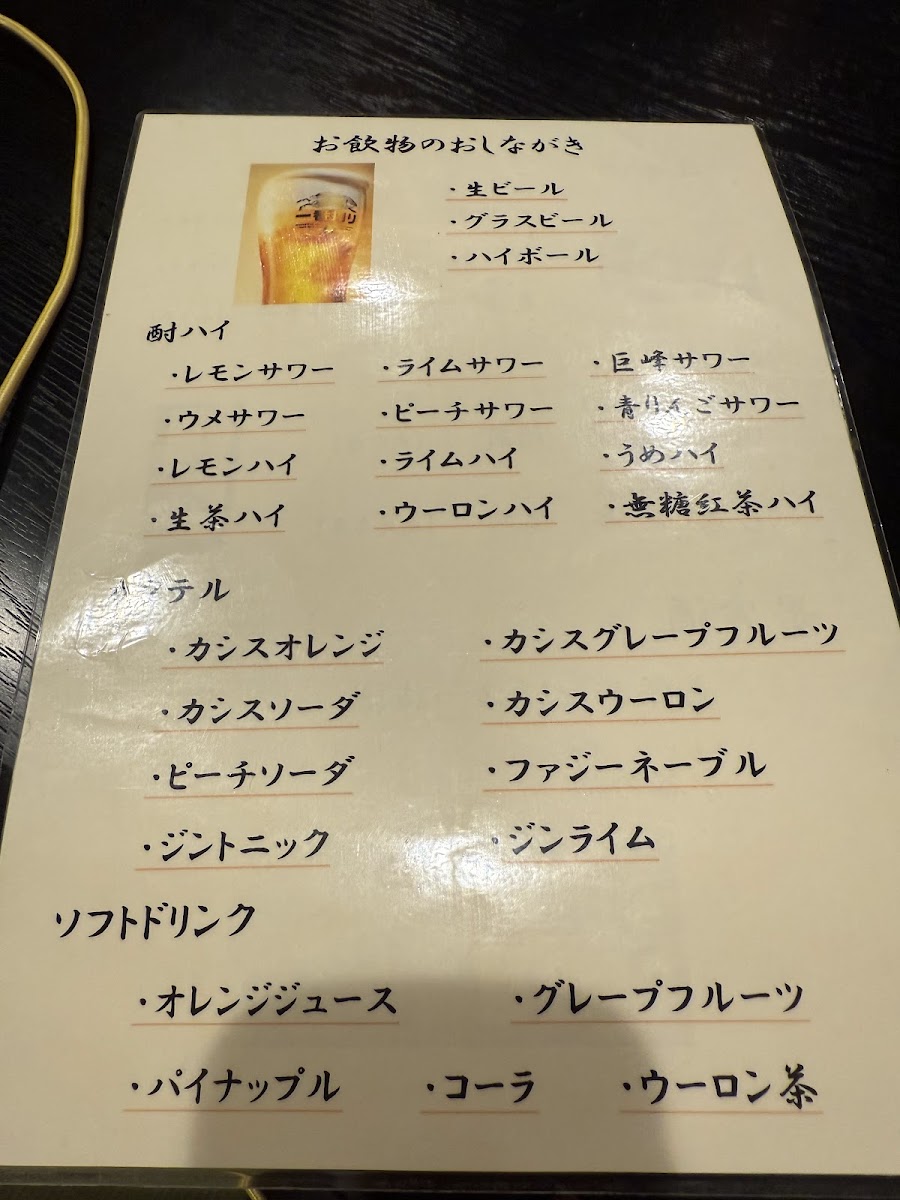 お飲物のおしながき
・生ビール
・グラスビール
・ハイボール
酎ハイ
・レモンサワー ・ライムサワー ・巨峰サワー
・ウメサワー ・ピーチサワー ・青りんごサワー
・レモンハイ ・ライムハイ ・うめハイ
・生茶ハイ ・ウーロンハイ ・無糖紅茶ハイ
カクテル
・カシスオレンジ ・カシスグレープフルーツ
・カシスソーダ ・カシスウーロン
・ピーチソーダ ・ファジーネーブル
・ジントニック ・ジンライム
ソフトドリンク
・オレンジジュース ・グレープフルーツ
・パイナップル ・コーラ ・ウーロン茶